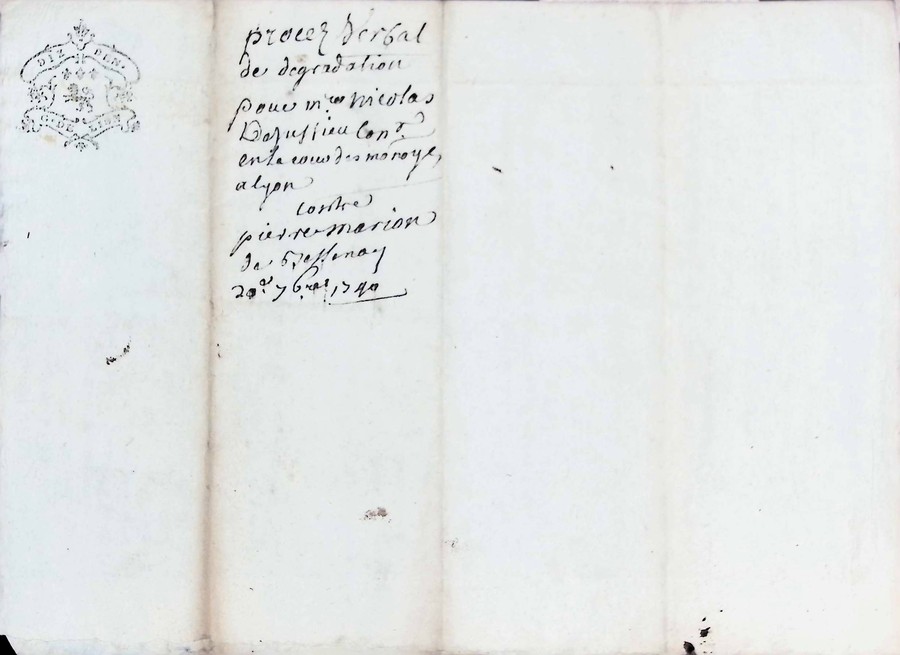 DIX DEN.
G. DE LYON
procez Verbal
de degradation
pour mre Nicolas
Dejussieu Conr
en la cour des monoyes
a lyon
contre
pierre marion
de
20e 7bre 1740